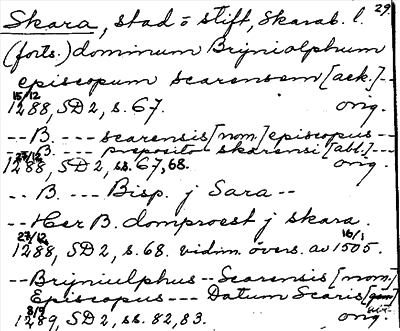 29.
Skara, stad o stift, Skarab. l.
(forts.) dominum Brynialphum
episcopum scarensem [ack.] --
15/12
1288, SD 2, s. 67. orig.
-- B. ---- scarensis [nom.] episcopus --
-- B. ---- preposito skarensi [abl.] ---
27/12
1288, SD 2, ss. 67, 68. orig.
-- B. ---- Bisp. j Sara --
-- Her B. domproest j skara.
27/12 16/1
1288, SD 2, s. 68. vidim. övers. av 1505.
-- Bryniulphus -- Scarensis [nom.]
Episcopus --- Datum Scaris [gen.]
1289, SD 2, ss. 82, 83. orig.